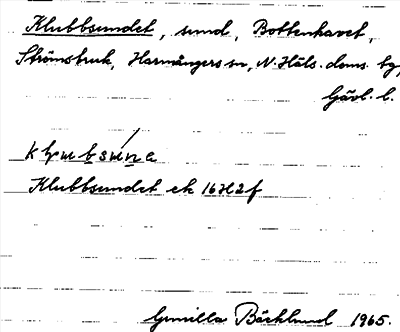 Klubbsundet, sund, Bottenhavet,
Strömsbruk, Harmångers sn, N. Häls. doms. bg,
Gävl. l.
Klubbsundet ek 16H2f
Gunilla Bäcklund 1965.